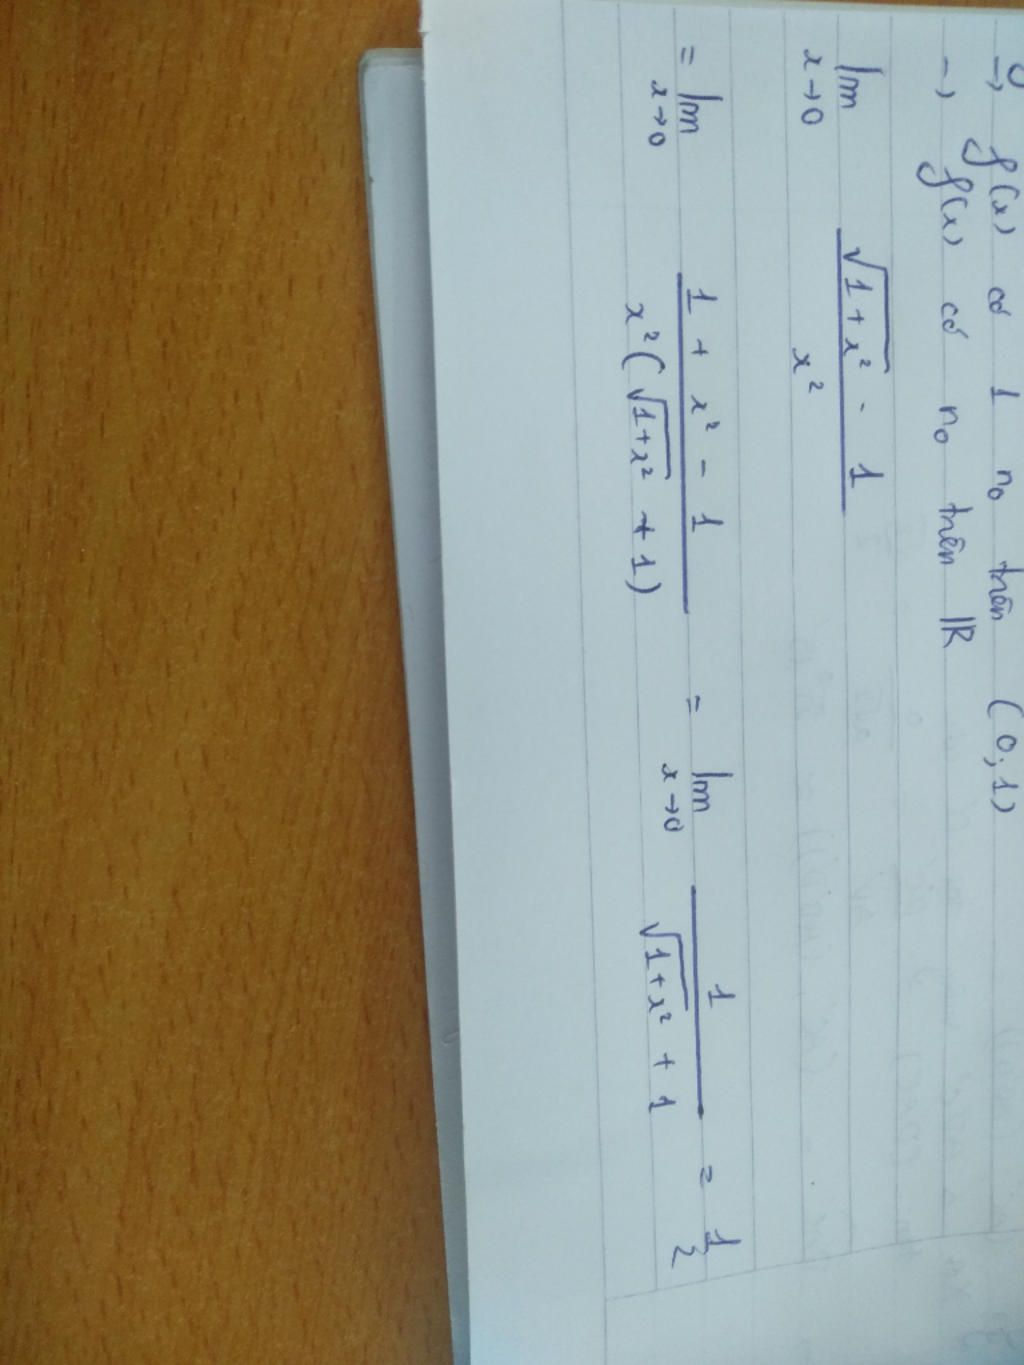 → f(x) có 1 n₀ trên (0,1)
→ f(x) có n₀ trên ℝ
lim x→0 (√(1+x²) - 1) / x²
= lim x→0 (1 + x² - 1) / (x²(√(1+x²) + 1)) = lim x→0 1 / (√(1+x²) + 1) = 1/2